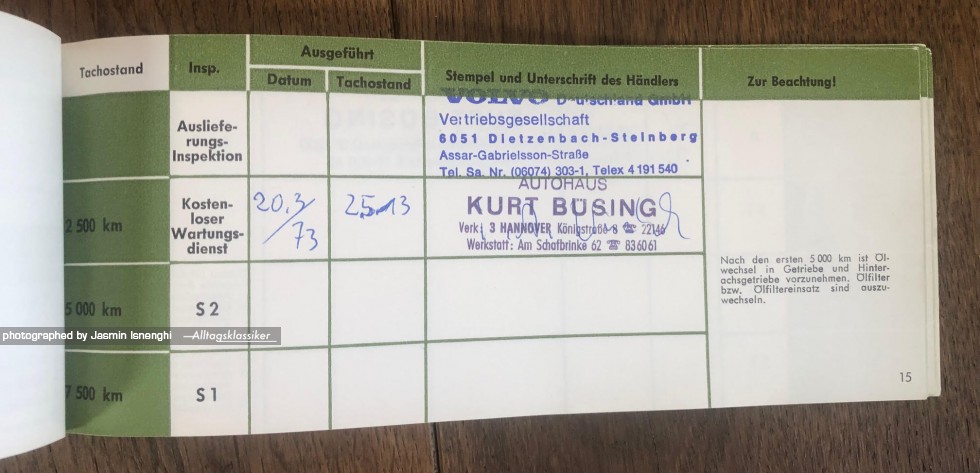 Tachostand
Insp.
Ausgeführt
Datum
Tachostand
Stempel und Unterschrift des Händlers
Zur Beachtung!
Ausliefe-
rungs-
Inspektion
VOLVO Deutschland GmbH
Vertriebsgesellschaft
6051 Dietzenbach-Steinberg
Assar-Gabrielsson-Straße
Tel. Sa. Nr. (06074) 303-1, Telex 4 191 540
2 500 km
Kosten-
loser
Wartungs-
dienst
20.3/73
2513
AUTOHAUS
KURT BÜSING
Verk: 3 HANNOVER Königstraße 8 ☎ 22146
Werkstatt: Am Schafbrinke 62 ☎ 83 60 61
Nach den ersten 5 000 km ist Öl-
wechsel in Getriebe und Hinter-
achsgetriebe vorzunehmen. Ölfilter
bzw. Ölfiltereinsatz sind auszu-
wechseln.
5 000 km
S 2
photographed by Jasmin Isnenghi —Alltagsklassiker
7 500 km
S 1
15